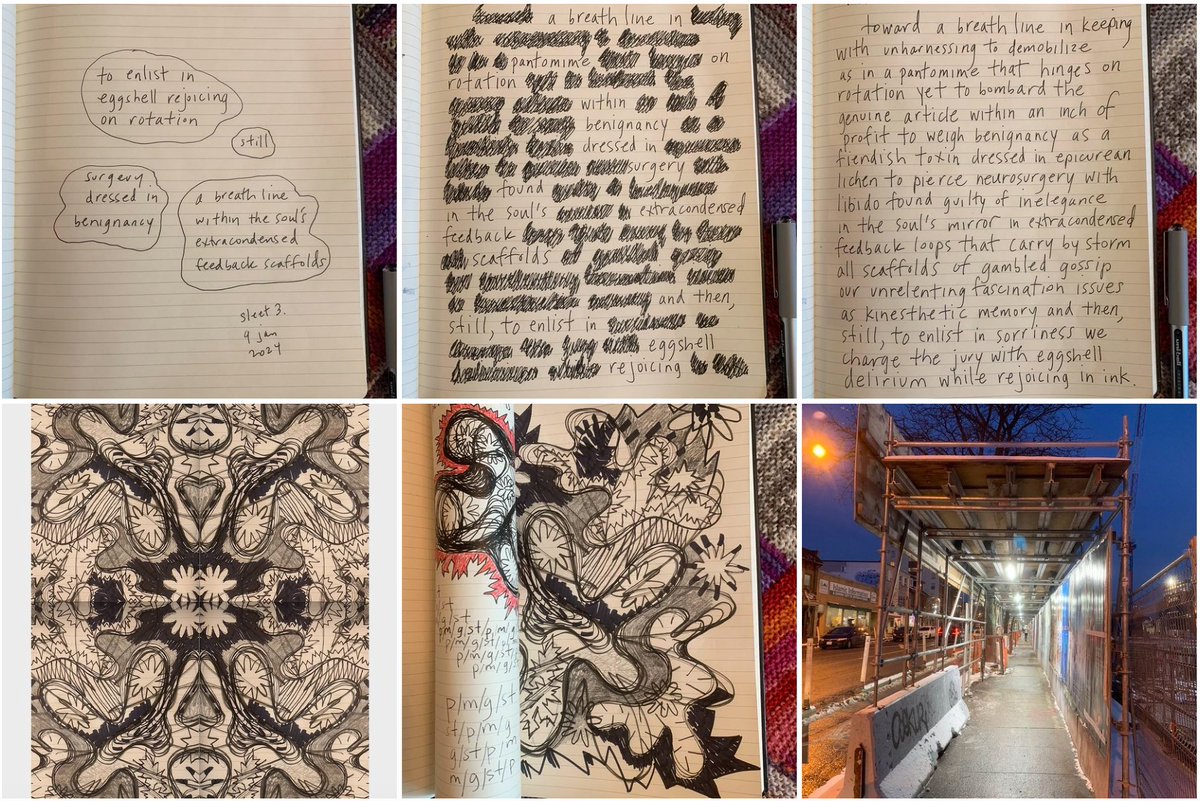 to enlist in
eggshell rejoicing
on rotation
still
surgery
dressed in
benignancy
a breath line
within the soul's
extracondensed
feedback scaffolds
sleet 3.
9 jan
2024
a breath line in
pantomime on
rotation
within
benignancy
dressed in
surgery
found
in the soul's extracondensed
feedback
scaffolds
and then,
still, to enlist in
eggshell
rejoicing
toward a breath line in keeping
with unharnessing to demobilize
as in a pantomime that hinges on
rotation yet to bombard the
genuine article within an inch of
profit to weigh benignancy as a
fiendish toxin dressed in epicurean
lichen to pierce neurosurgery with
libido found guilty of inelegance
in the soul's mirror in extracondensed
feedback loops that carry by storm
all scaffolds of gambled gossip
our unrelenting fascination issues
as kinesthetic memory and then,
still, to enlist in sorriness we
charge the jury with eggshell
delirium while rejoicing in ink.
/g/st
p/m/g/st/p/m/g
p/m/g/st
p/m/g
p/m/g/st
st/p/m/g
g/st/p/m
m/g/st/p